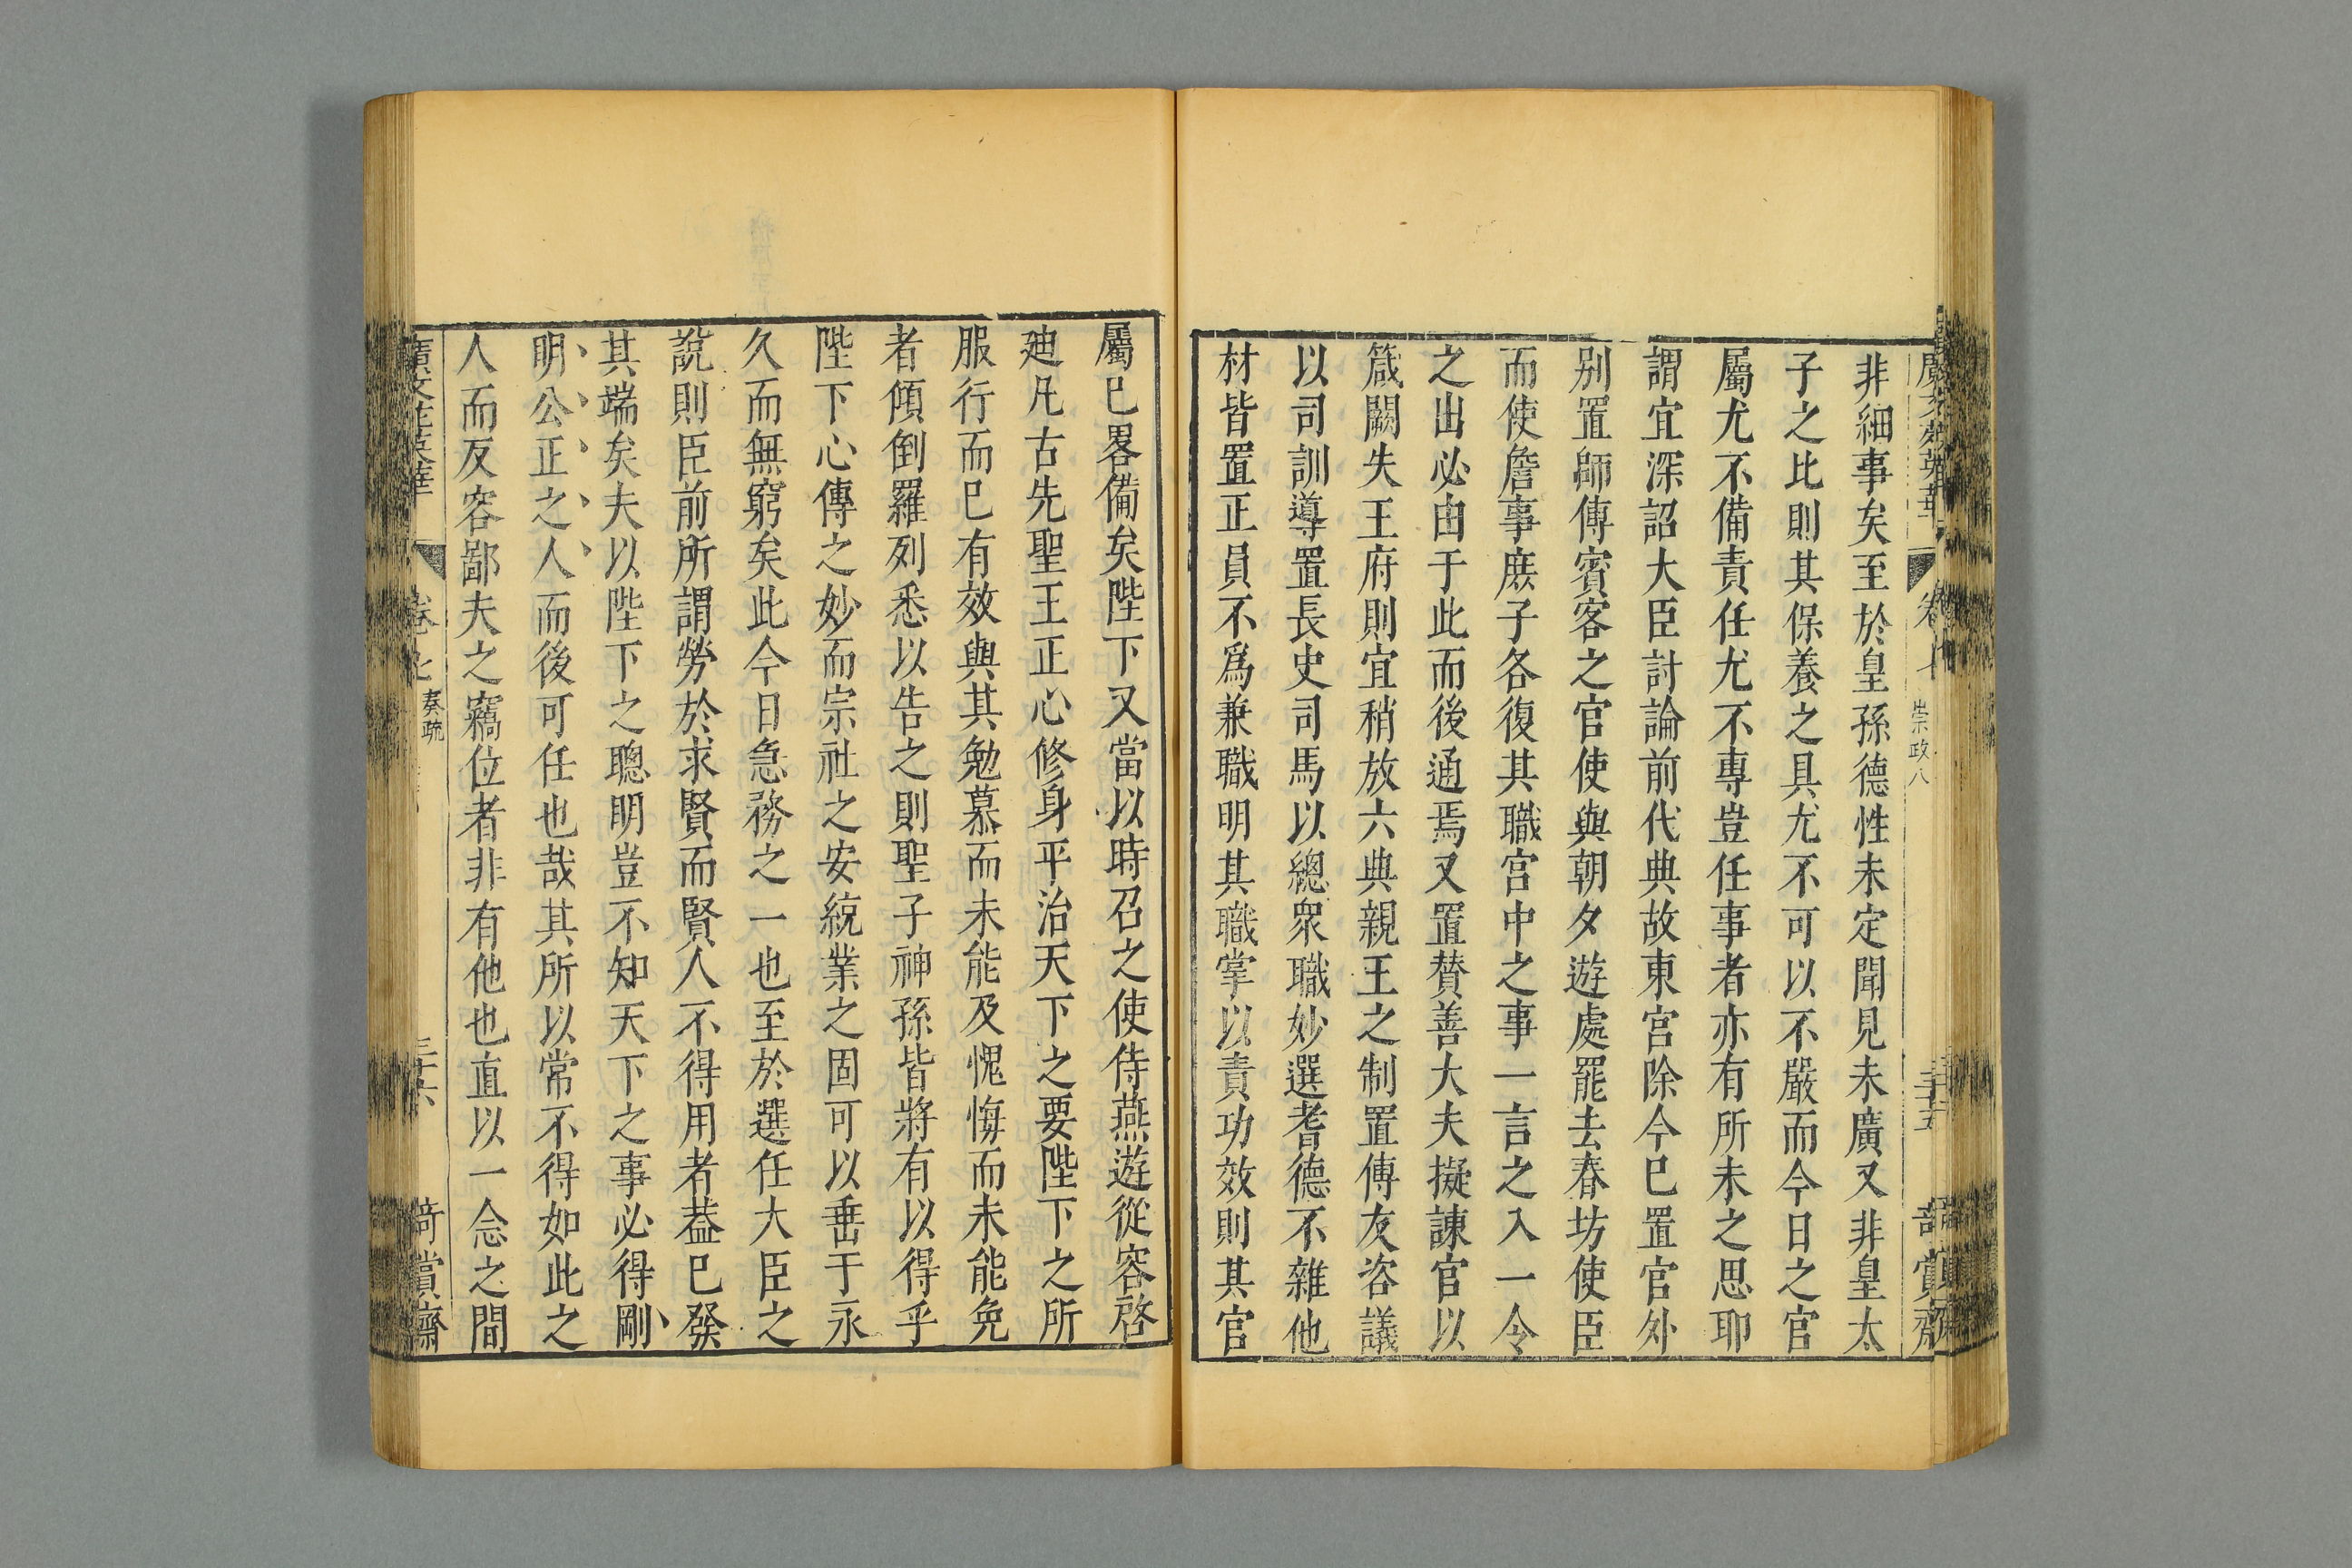 非細事矣至於皇孫德性未定聞見未廣又非皇太
子之比則其保養之具尤不可以不嚴而今日之官
屬尤不備責任尤不專豈任事者亦有所未之思耶
謂宜深詔大臣討論前代典故東宮除今已置官外
别置師傅賓客之官使與朝夕遊處罷去春坊使臣
而使詹事庶子各復其職宫中之事一言之入一令
之出必由于此而後通焉又置賛善大夫擬諫官以
箴闕失王府則宜稍放六典親王之制置傅友咨議
以司訓導置長史司馬以總衆職妙選耆德不雜他
材皆置正員不爲兼職明其職掌以責功效則其官
屬已畧備矣陛下又當以時召之使侍燕遊從容啓
廸凡古先聖王正心修身平治天下之要陛下之所
服行而已有效與其勉慕而未能及愧悔而未能免
者傾倒羅列悉以告之則聖子神孫皆將有以得乎
陛下心傳之妙而宗社之安統業之固可以垂于永
久而無窮矣此今日急務之一也至於選任大臣之
說則臣前所謂勞於求賢而賢人不得用者葢已發
其端矣夫以陛下之聰明豈不知天下之事必得剛
明公正之人而後可任也哉其所以常不得如此之
人而反容鄙夫之竊位者非有他也直以一念之間
廣文苑英華 卷七 奏疏 三十六 奇賞齋